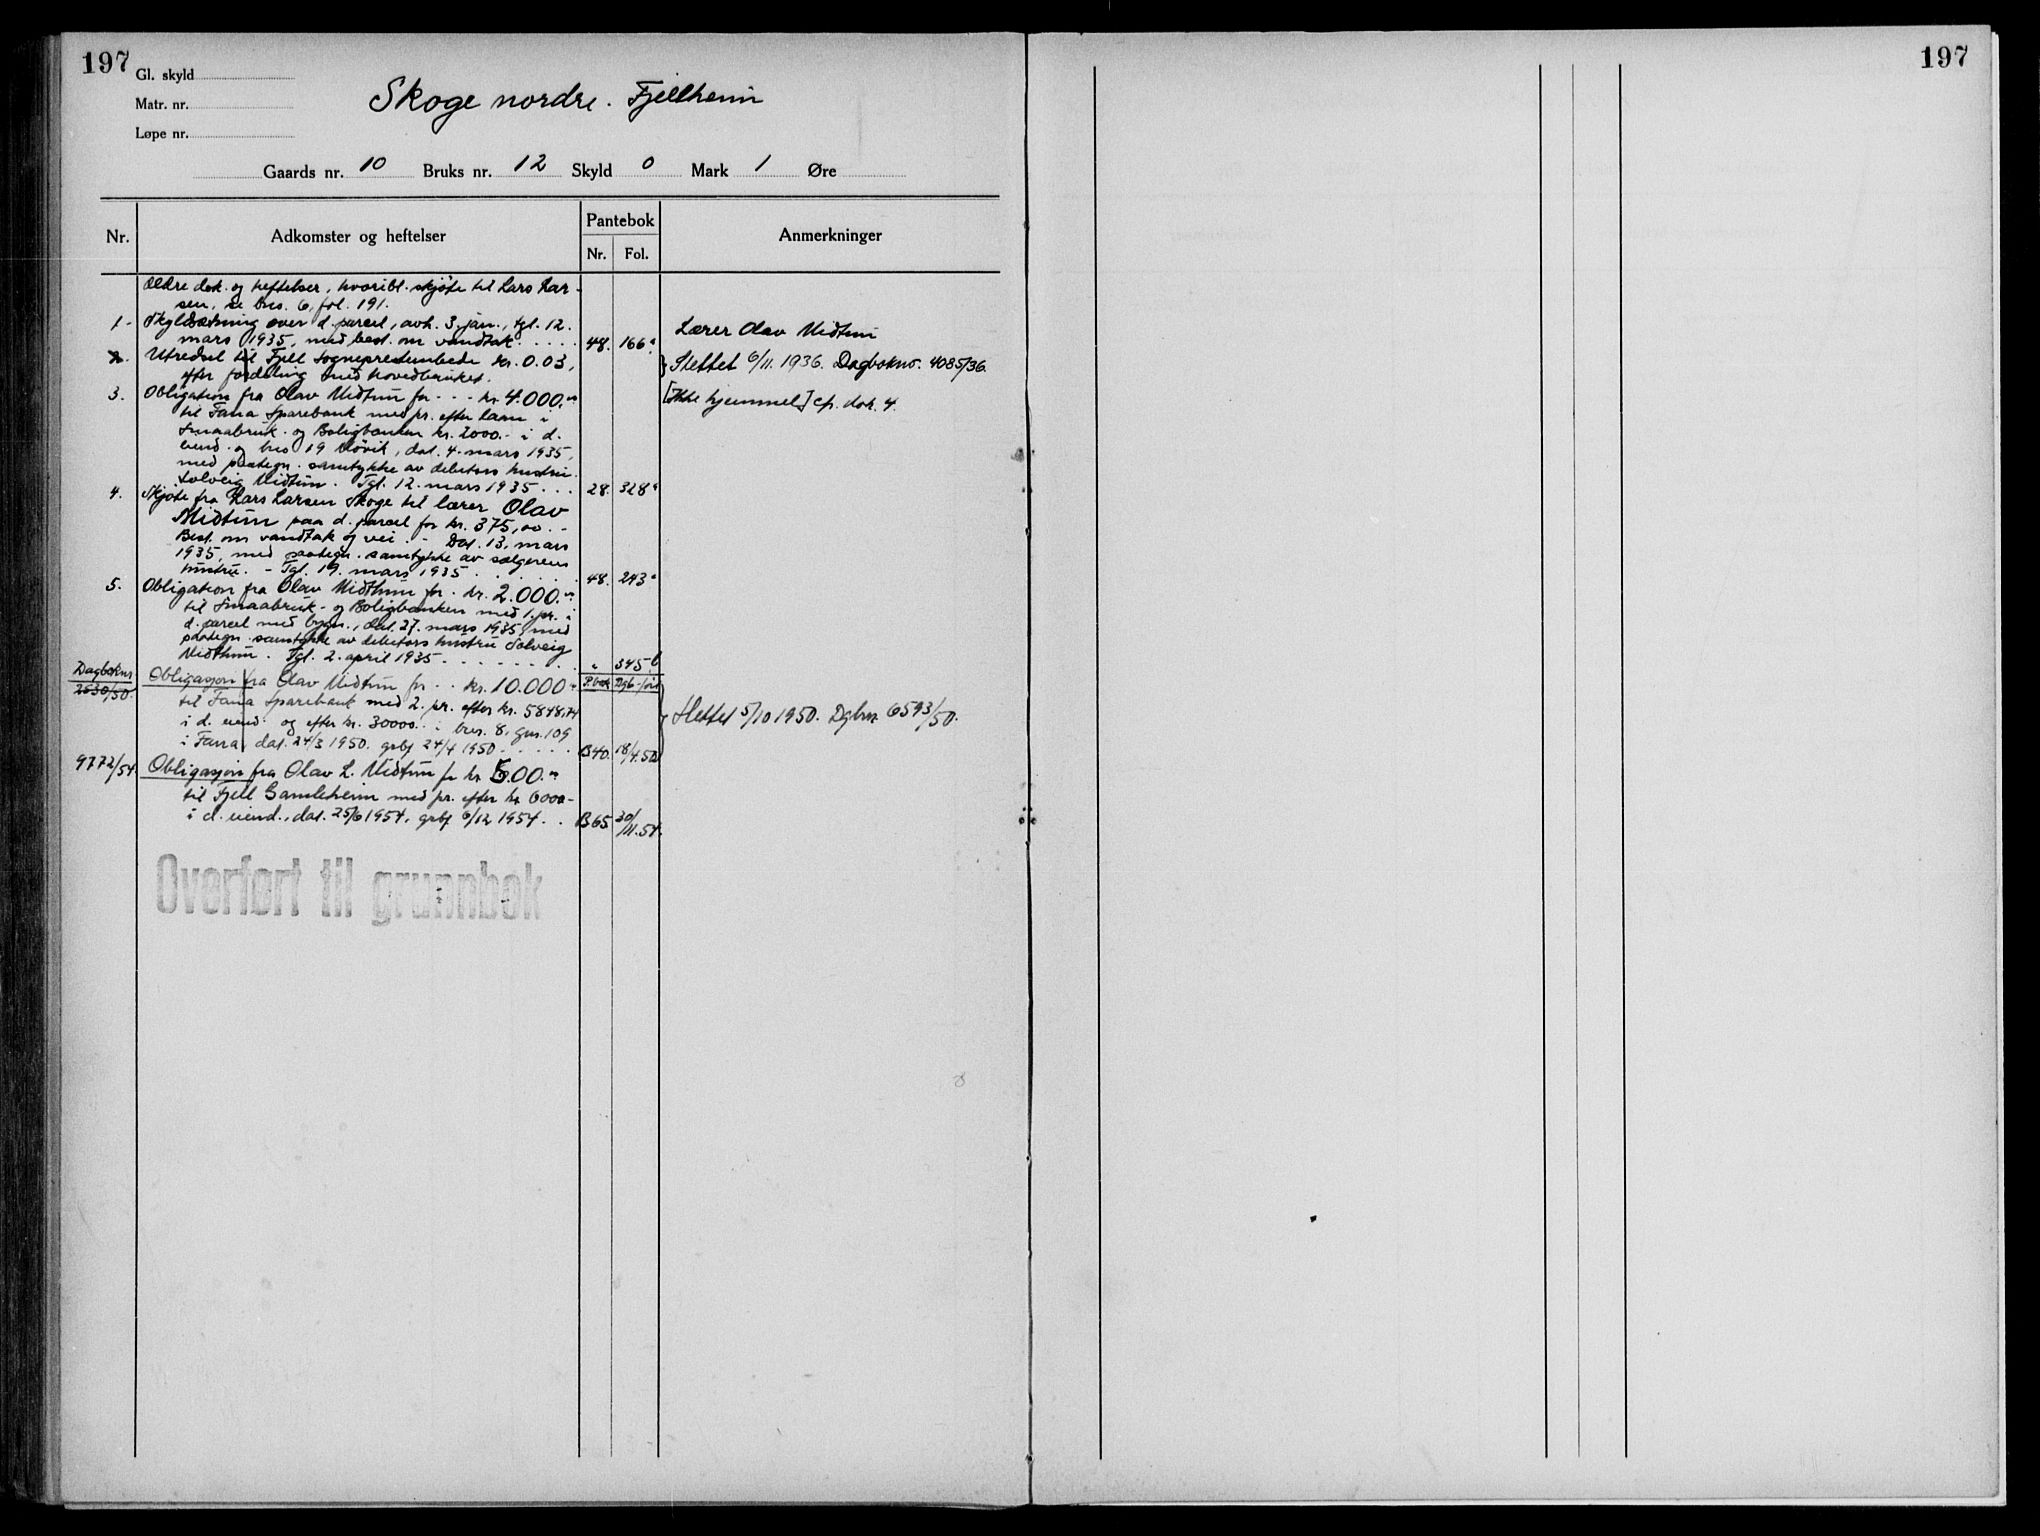 197
Gl. skyld
Matr. nr.
Løpe nr.
Skoge nordre. Fjellheim
Gaards nr. 10 Bruks nr. 12 Skyld 0 Mark 1 Øre
Nr. Adkomster og heftelser Pantebok Anmerkninger
Nr. Fol.
Ældre dok. og heftelser, hvoribl. skjøte til Lars Lar-
sen, se bno. 6, fol. 191.
1. Skyldsætning over d. parcel, avh. 3. jan., tgl. 12.
mars 1935, med best. om vandtak 48. 166a
Lærer Olav Midtun
2. Utredsel til Fjell sogneprestembede kr. 0.03,
efter fordeling med hovedbruket.
Slettet 6/11. 1936. Dagbokno. 4085/36.
3. Obligation fra Olav Midtun for - - - kr. 4.000,-
[Ikke hjemmel] cfr. dok. 4.
til Fana Sparebank med pr. efter laan i
Smaabruk- og Boligbanken kr. 2000.- i d.
eiend. og bno 19 Møvik, dat. 4. mars 1935,
med paategn. samtykke av debitors hustru
Solveig Midtun. Tgl. 12. mars 1935 . . . 28. 328a
4. Skjøte fra Lars Larsen Skoge til lærer Olav
Midtun paa d. parcel for kr. 375,oo. -
Best. om vandtak og vei. - Dat. 13. mars
1935, med paategn. samtykke av sælgerens
hustru. - Tgl. 19. mars 1935 . . . 48. 243a
5. Obligation fra Olav Midthun for. kr. 2.000.-
til Smaabruk- og Boligbanken med 1. pr. i
d. parcel med bygn., dat. 27. mars 1935, med
paategn. samtykke av debitors hustru Solveig
Midthun. Tgl. 2. april 1935 . . . " 345b
Dagboknr. P.bok Dgb-förd
2530/50. Obligasjon fra Olav Midtun for - - kr. 10.000.-
til Fana Sparebank med 2. pr. efter kr. 5848,74
i d. eiend. og efter kr. 30000.- i bnr. 8, gnr. 109
Slettet 5/10 1950. Dgbnr. 6593/50.
i Fana, dat. 24/3 1950. grbf 24/4 1950 . . . B40. 18/4.50
9772/54. Obligasjon fra Olav L. Midtun for kr 600.-
til Fjell Gamleheim med pr. efter kr 6000.-
i d. eiend., dat. 25/6 1954, grbf 6/12 1954 . . B65. 30/11.54.
Overført til grunnbok
197